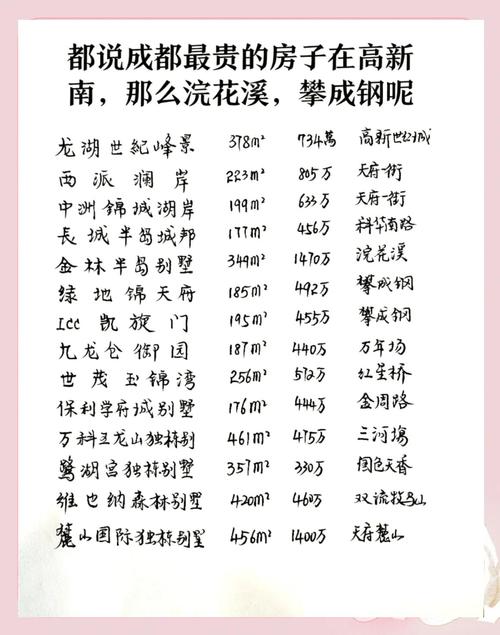 都说成都最贵的房子在高新
南，那么浣花溪，攀成钢呢
龙湖世紀峰景 378m² 734萬 高新世纪城
西派澜岸 223m² 805万 天府一街
中洲锦城湖岸 199m² 633万 天府一街
長城半岛城邦 177m² 456万 科华南路
金林半岛别墅 349m² 1470万 浣花溪
绿地锦天府 185m² 492万 攀成钢
ICC凯旋门 195m² 455万 攀成钢
九龙仓御园 187m² 440万 万年场
世茂玉锦湾 256m² 572万 红星桥
保利学府城别墅 176m² 444万 金周路
万科五龙山独栋别 461m² 475万 三河塲
鹭湖宫独栋别墅 357m² 330万 国色天香
维也纳森林别墅 420m² 460万 双流牧马山
麓山国际独栋别墅 456m² 1400万 天府麓山